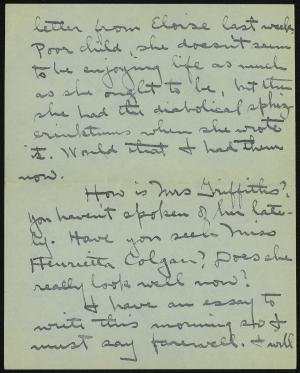 letter from Eloise last week.
Poor child, she doesn't seem
to be enjoying life as much
as she ought to be, but then
she had the diabolical sphiz-
erinktums when she wrote
it. Would that I had them
now.
How is Mrs Griffiths?
You haven't spoken of her late-
ly. Have you seen Miss
Henrietta Colgan? Does she
really look well now?
I have an essay to
write this morning so I
must say farewell. I will